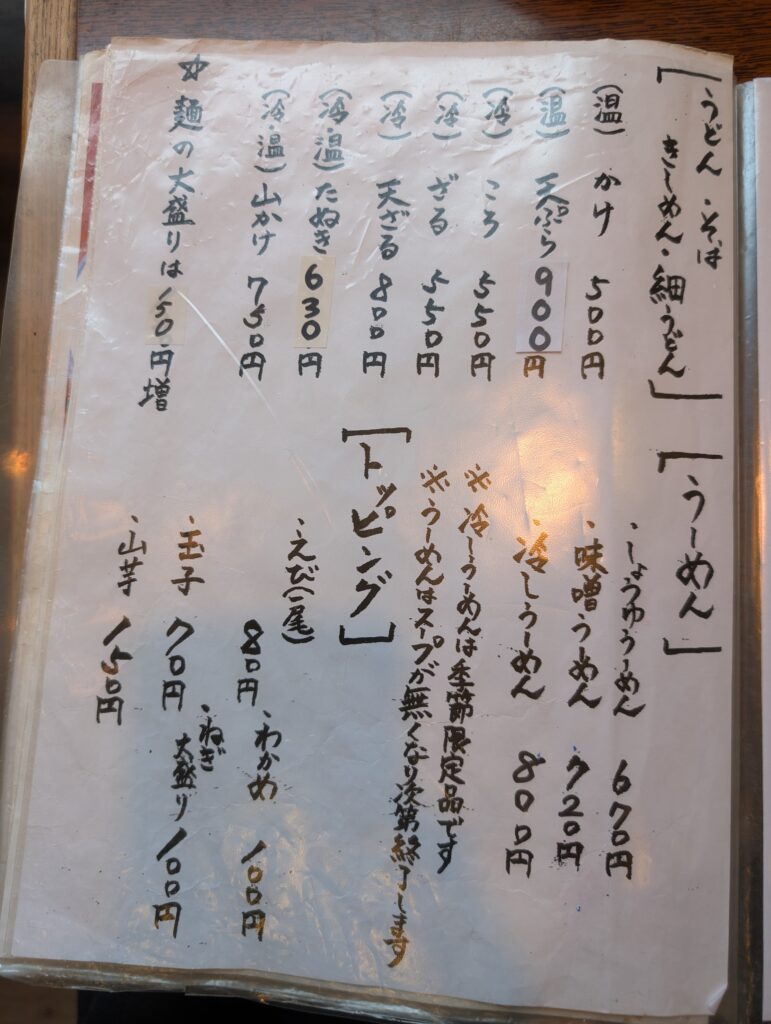 [うどん・そば
きしめん・細うどん]
(温) かけ 500円
(温) 天ぷら 900円
(冷) ころ 550円
(冷) ざる 550円
(冷) 天ざる 800円
(冷・温) たぬき 630円
(冷・温) 山かけ 750円
☆ 麺の大盛りは150円増
[うーめん]
・しょうゆうーめん 670円
・味噌うーめん 720円
・冷しうーめん 800円
※ 冷しうーめんは季節限定品です
※うーめんはスープが無くなり次第終了します
[トッピング]
・えび(一尾) 80円
・わかめ 100円
・玉子 70円
・ねぎ大盛り 100円
・山芋 150円